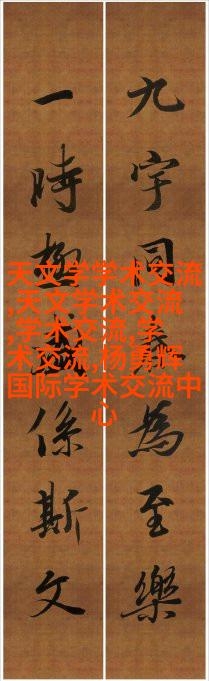 九宇同為至樂
一時極係斯文
天文学学术交流
,天文学术交流
,学术交流,学
术交流,杨勇辉
国际学术交流中
心